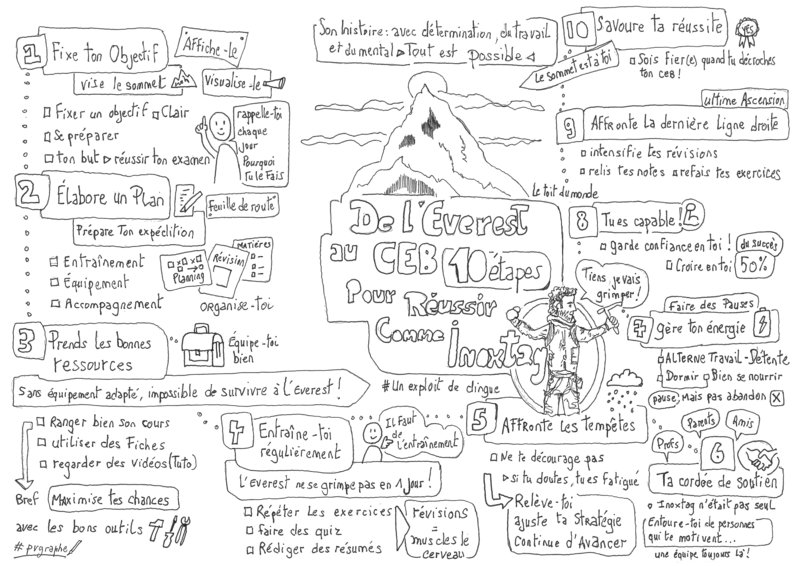 Son histoire : avec détermination, du travail
et du mental ▷ Tout est possible ◁
De l'Everest
au CEB 10 étapes
Pour Réussir
Comme Inoxtag
Le toit du monde
# Un exploit de dingue
Tiens je vais
grimper !
1 Fixe ton Objectif
Affiche-le
vise le sommet
Visualise-le
Fixer un objectif Clair
Se préparer
ton but ▷ réussir ton examen
rappelle-toi
chaque
jour
Pourquoi
Tu le Fais
2 Élabore un Plan
Feuille de route
Prépare Ton expédition
Entraînement
Équipement
Accompagnement
Planning
Révision
Matières
organise-toi
3 Prends les bonnes
ressources
Équipe-toi
bien
Sans équipement adapté, impossible de survivre à l'Everest !
Ranger bien son cours
utiliser des Fiches
regarder des vidéos (Tuto)
Bref Maximise tes chances
avec les bons outils
# pvgraphe
4 Entraîne-toi
régulièrement
Il Faut
de
l'entraînement
L'Everest ne se grimpe pas en 1 jour !
Répéter les exercices
faire des quiz
Rédiger des résumés
révisions
=
muscles le
cerveau
5 Affronte les Tempêtes
Ne te décourage pas
▷ si tu doutes, tu es fatigué
Relève-toi
ajuste ta Stratégie
Continue d'Avancer
Profs
Parents
Amis
6
Ta cordée de soutien
Inoxtag n'était pas seul
Entoure-toi de personnes
qui te motivent...
une équipe toujours là !
Faire des Pauses
7 gère ton énergie
ALTERNE Travail-Détente
Dormir Bien se nourrir
pause, Mais pas abandon
8 Tu es capable !
garde confiance en toi !
Croire en toi
du succès
50%
ultime Ascension
9 Affronte la dernière Ligne droite
intensifie tes révisions
relis tes notes refais tes exercices
10 Savoure ta réussite
YES
Le sommet est à toi
Sois Fier(e) quand tu décroches
ton CEB !